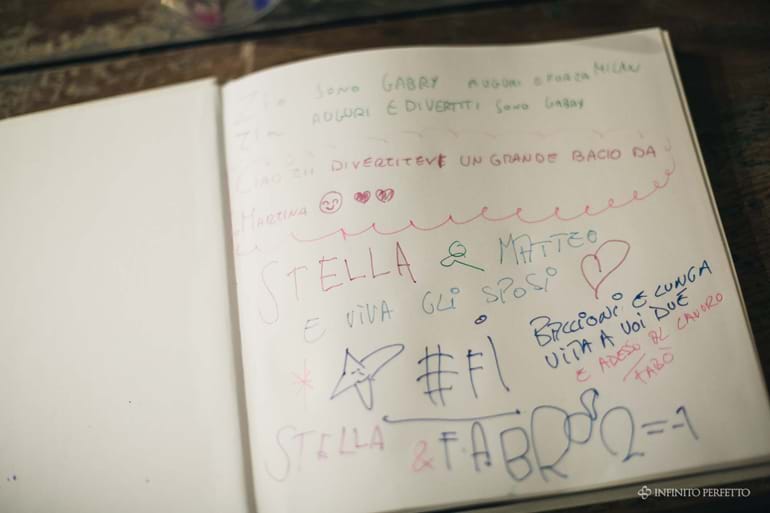 Zio SONO GABRY AUGURI E FORZA MILAN
Zia AUGURI E DIVERTITI SONO GABRY
CIAO ZII DIVERTITEVE UN GRANDE BACIO DA
MARTINA
STELLA & MATTEO
E VIVA GLI SPOSI
BACCIONI E LUNGA
VITA A VOI DUE
E ADESSO AL LAVORO
FABÒ
#Fi
STELLA & FABRO
INFINITO PERFETTO